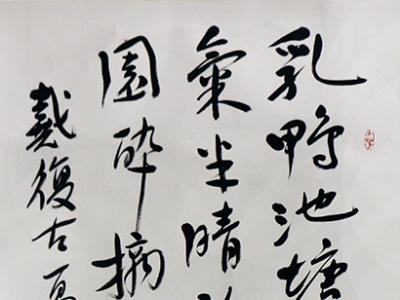 乳鸭池塘
氣半晴
園醉摘
戴復古夏